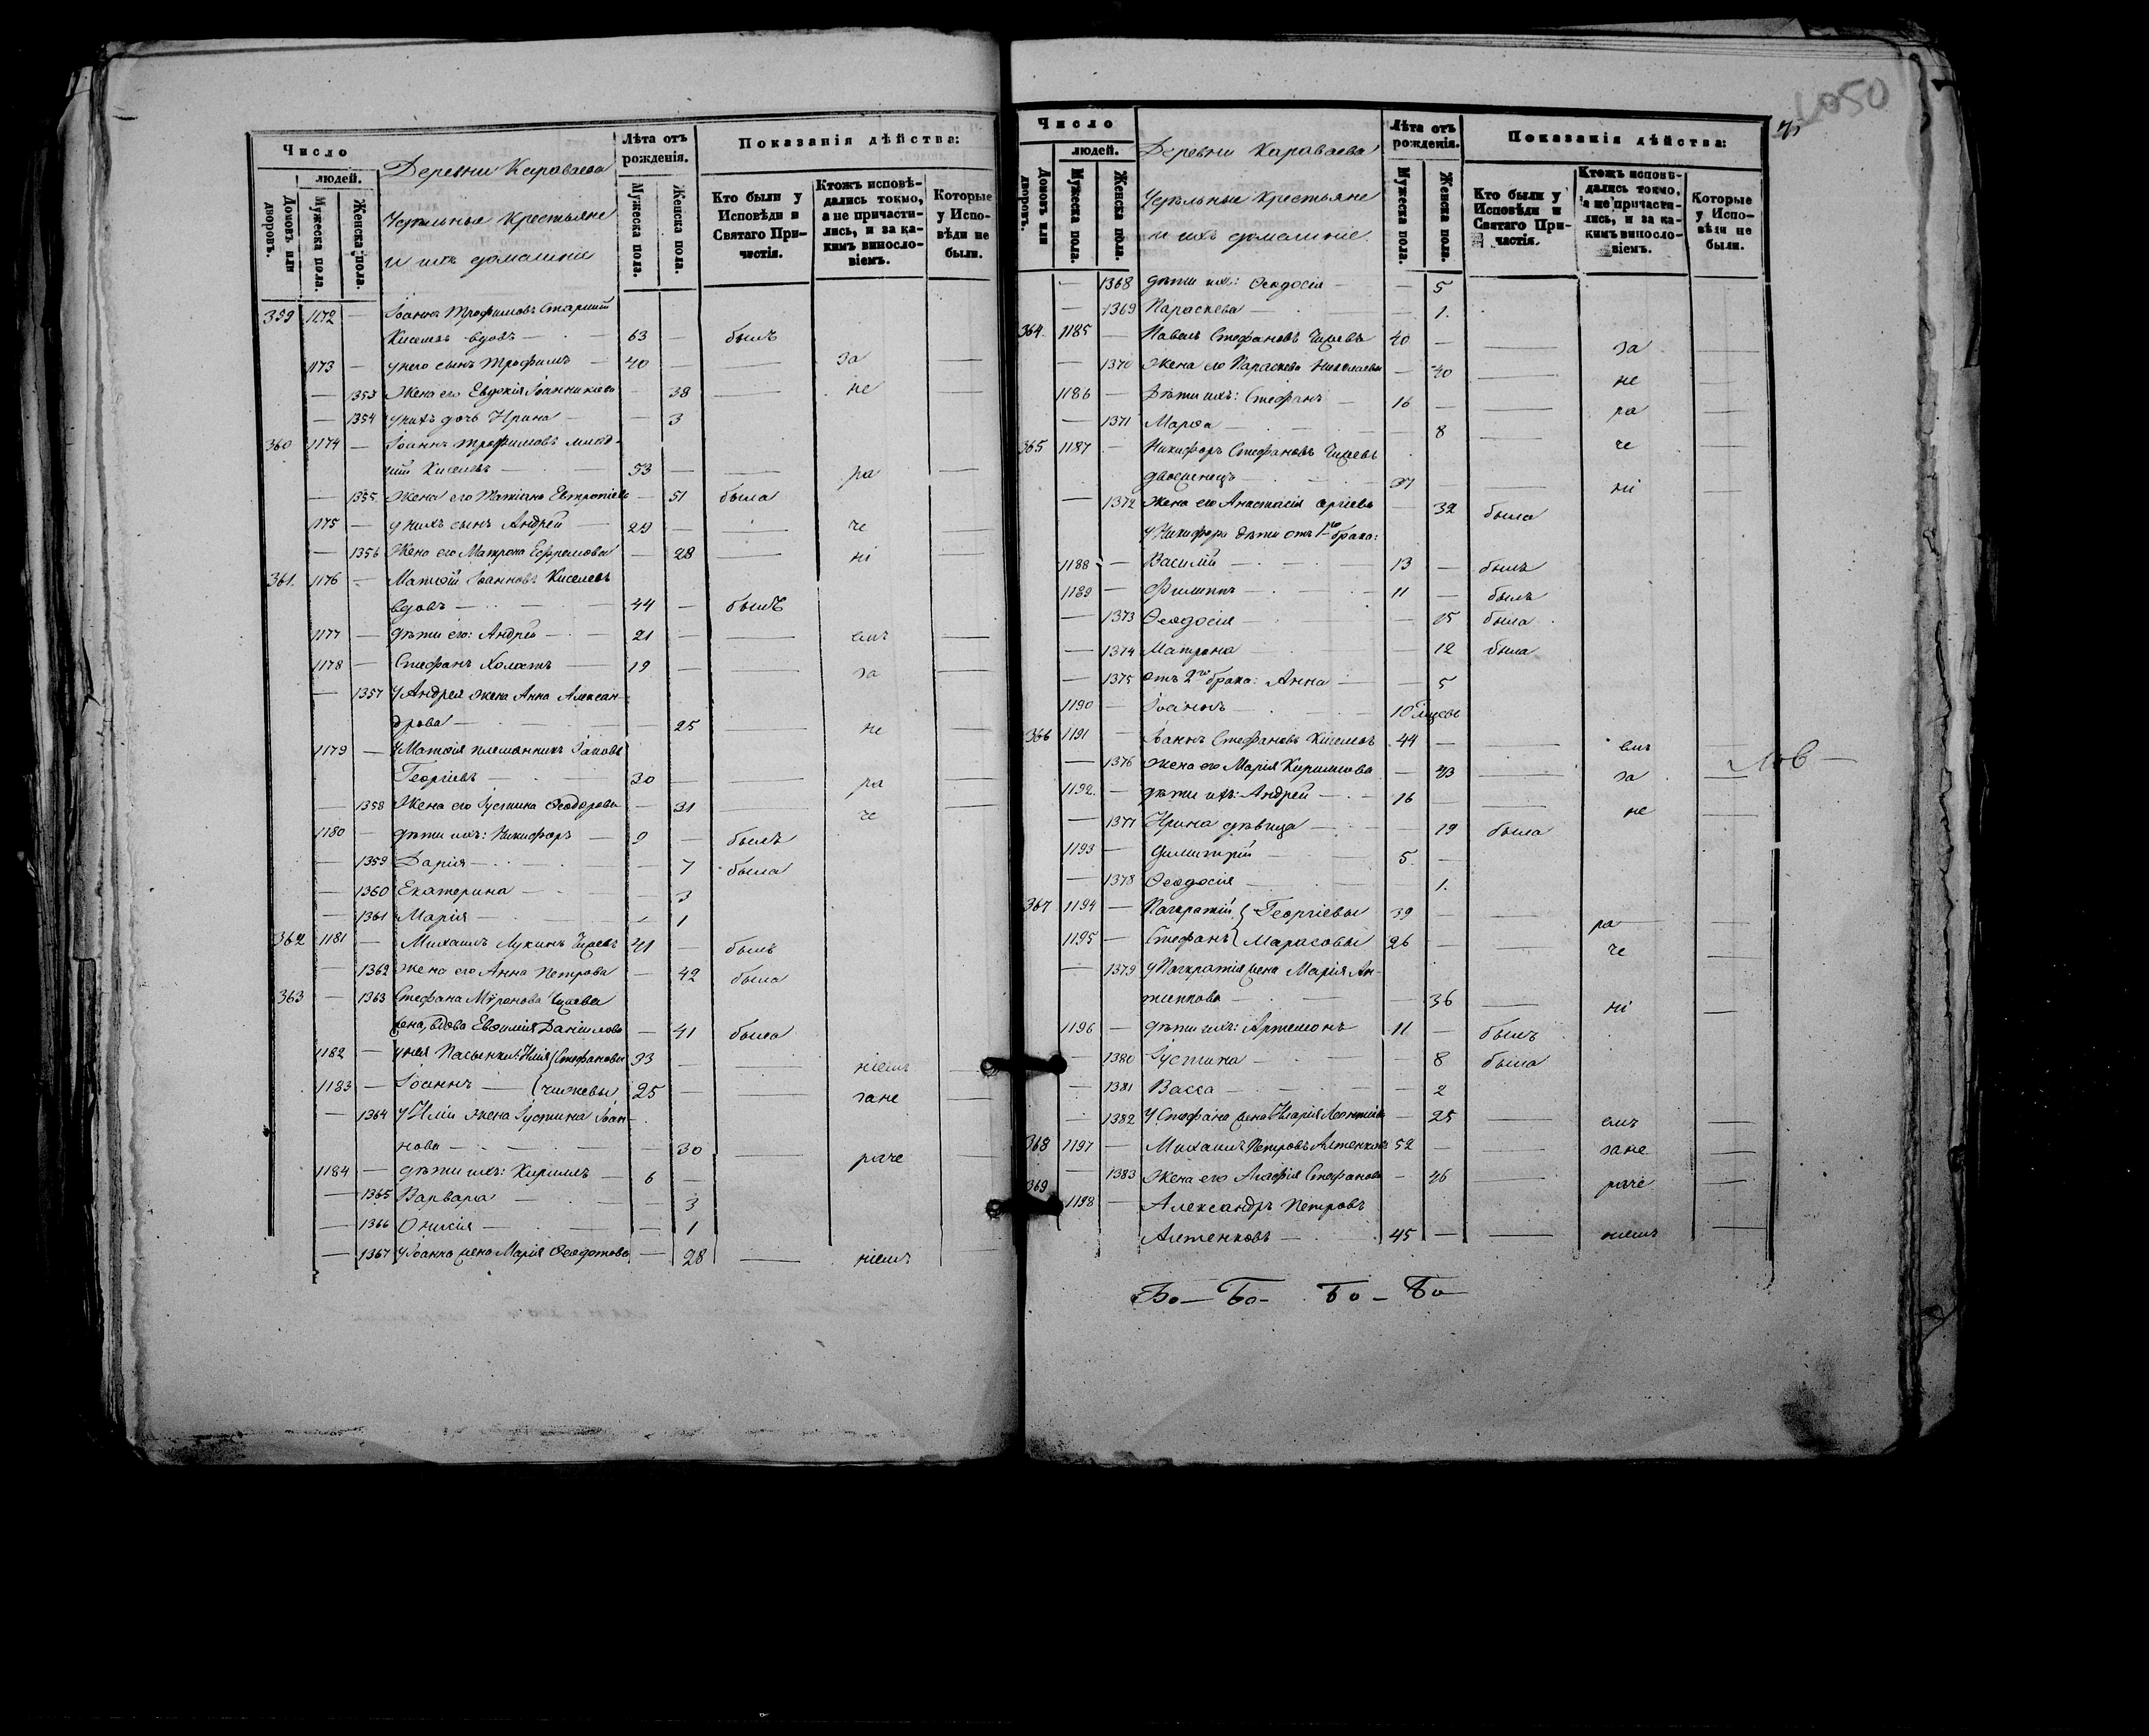 Число
людей.
Домовъ или дворовъ.
Мужеска пола.
Женска пола.
Деревни Караваева
Удѣльные крестьяне
и ихъ домашніе
Лѣта отъ рожденія.
Мужеска пола.
Женска пола.
Показанія дѣйства:
Кто были у Исповѣди и Святаго Причастія.
Ктожъ исповѣдались токмо, а не причастились, и за какимъ винословіемъ.
Которые у Исповѣди не были.
359 1172 — Іоаннъ Трофимовъ старшій
Киселевъ вдовъ — 63 — былъ
1173 — у него сынъ Трофимъ — 40 — — за —
— 1353 Жена его Евдокія Іоанникіева — 38 — не —
— 1354 у нихъ дочь Ирина — — 3
360 1174 — Іоаннъ Трофимовъ млад-
шій Киселевъ — 53 — — ра —
— 1355 Жена его Татіана Евтропіева — 51 была
1175 — у нихъ сынъ Андрей — 29 — — че —
— 1356 Жена его Матрона Ефремова — 28 — ні —
361. 1176 — Матѳій Іоанновъ Киселевъ
вдовъ — 44 — былъ
1177 — дѣти его: Андрей — 21 — — емъ —
1178 — Стефанъ Холостъ — 19 — — за —
— 1357 у Андрея жена Анна Алексан-
дрова — — 25 — не —
1179 — у Матѳія племянникъ Іаковъ
Георгіевъ — 30 — — ра —
— 1358 Жена его Іустина Ѳеодорова — 31 — че —
1180 — дѣти ихъ: Никифоръ — 9 — былъ
— 1359 Дарія — — 7 была
— 1360 Екатерина — — 3
— 1361 Марія — — 1
362 1181 — Михаилъ Лукинъ 41 — былъ
— 1362 Жена его Анна Петрова — 42 была
363 — 1363 Стефана Мѵронова
жена, вдова Евѳимія Даніилова — 41 была
1182 — у нея пасынки: Илія } Стефановы 33 — — ніемъ —
1183 — Іоаннъ — } 25 — — зане —
— 1364 у Иліи жена Іустина Іоан-
нова — — 30 — раче —
1184 — дѣти ихъ: Кириллъ — 6 —
— 1365 Варвара — — 3
— 1366 — 1
— 1367 у Іоанна жена Марія Ѳеодотова — 28 — ніемъ
1050
Число
людей.
Домовъ или дворовъ.
Мужеска пола.
Женска пола.
Деревни Караваева
Удѣльные крестьяне
и ихъ домашніе.
Лѣта отъ рожденія.
Мужеска пола.
Женска пола.
Показанія дѣйства:
Кто были у Исповѣди и Святаго Причастія.
Ктожъ исповѣдались токмо, а не причастились, и за какимъ винословіемъ.
Которые у Исповѣди не были.
— 1368 дѣти ихъ: Ѳеодосія — — 5
— 1369 Параскева — — 1.
364. 1185 — Павелъ Стефановъ 40 — — за —
— 1370 Жена его Параскева Николаева — 40 — не —
1186 — Дѣти ихъ: Стефанъ — 16 — — ра —
— 1371 Марѳа — — 8 — че —
365 1187 — Никифоръ Стефановъ
двоеженецъ — 37 — — ні —
— 1372 Жена его Анастасія — 32 была
у Никифора дѣти отъ 1го брака:
1188 — Василій — 13 — былъ
1189 — Филиппъ — 11 — былъ
— 1373 Ѳеодосія — — 15 была
— 1374 Матрона — — 12 была
— 1375 отъ 2го брака: Анна — — 5
1190 — Іоаннъ — 10
366 1191 — Іоаннъ Стефановъ Киселевъ 44 — — емъ —
— 1376 Жена его Марія Кириллова — 43 — за —
1192. — дѣти ихъ: Андрей — 16 — — не —
— 1377 Ирина дѣвица — — 19 была
1193 — Димитрій — 5. —
— 1378 Ѳеодосія — — 1.
367 1194 — Панкратій } Георгіевы 39 — — ра —
1195 — Стефанъ } Марасовы 26 — — че —
— 1379 у Панкратія жена Марія Ан-
типпова — — 36 — ні —
1196 — дѣти ихъ: Артемонъ 11 — былъ
— 1380 Іустина — — 8 была
— 1381 Васса — — 2
— 1382 у Стефана жена Марія Леонтіева — 25 — емъ —
368 1197 — Михаилъ Петровъ Алтенковъ 52 — — зане —
— 1383 Жена его Агафія Стефанова — 46 — раче —
369 1198 — Александръ Петровъ
Алтенковъ — 45 — — ніемъ —
Бо — Бо — Бо — Бо —